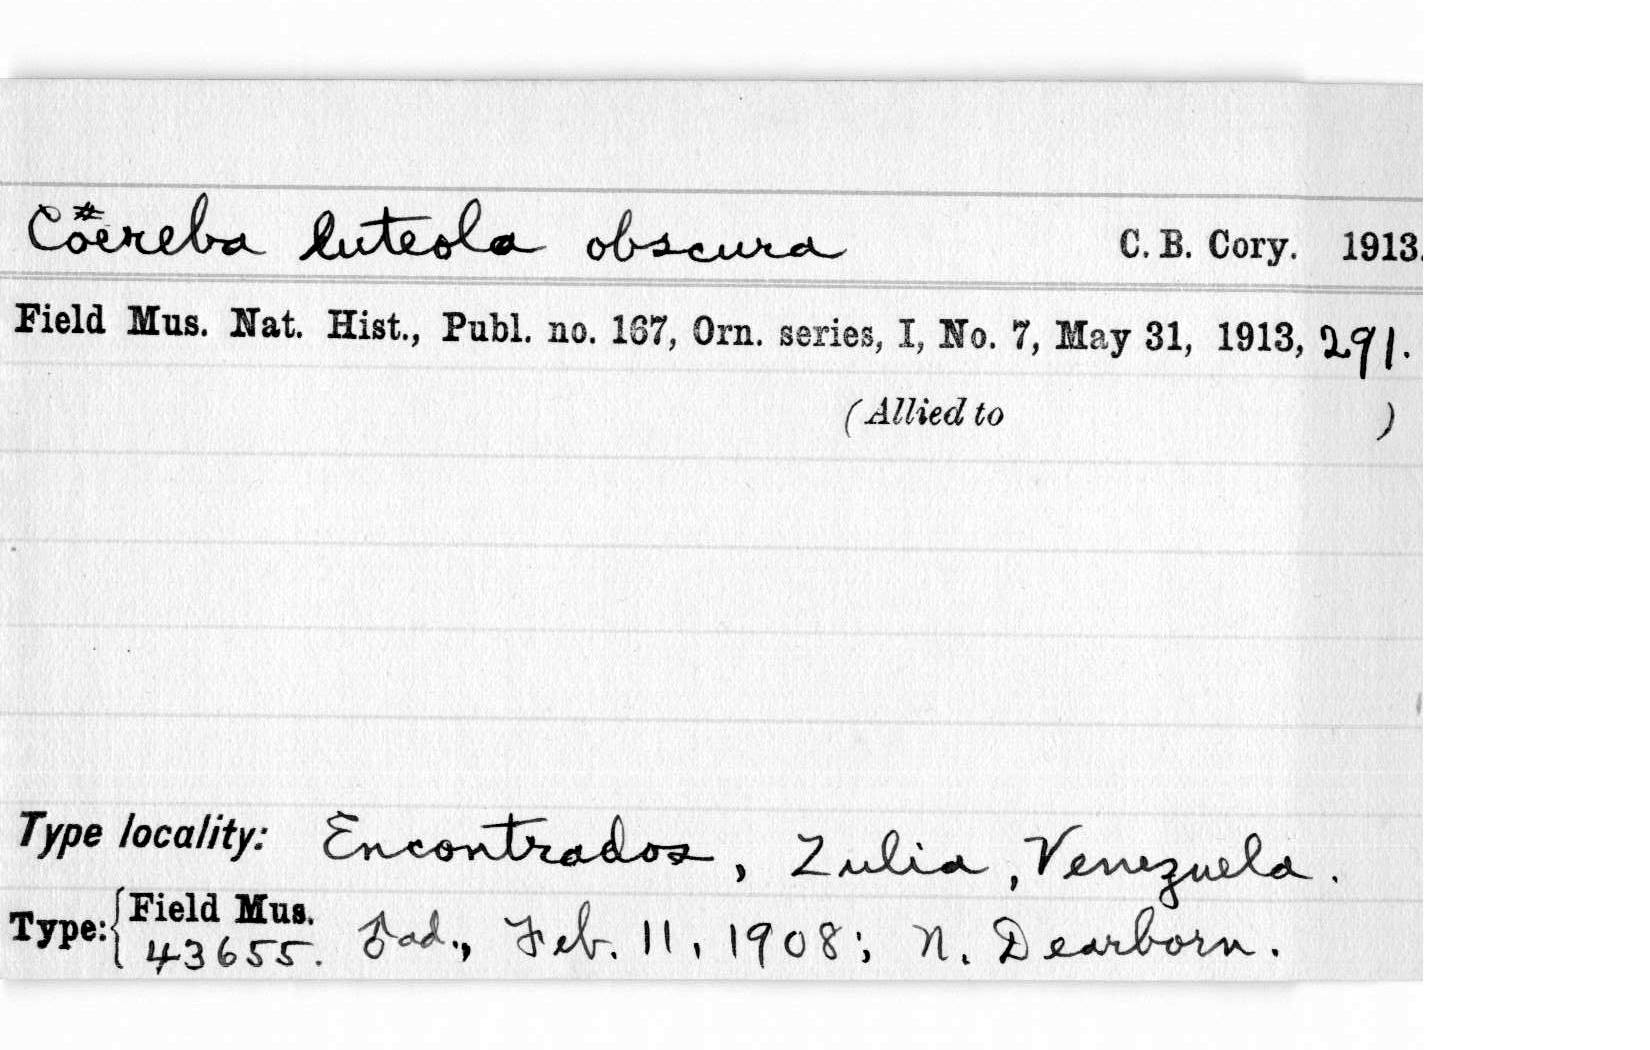 Coereba luteola obscura C. B. Cory. 1913.
Field Mus. Nat. Hist., Publ. no. 167, Orn. series, I, No. 7, May 31, 1913, 291.
(Allied to )
Type locality: Encontrados, Zulia, Venezuela.
Type: Field Mus.
43655. ♂ ad., Feb. 11, 1908; N. Dearborn.